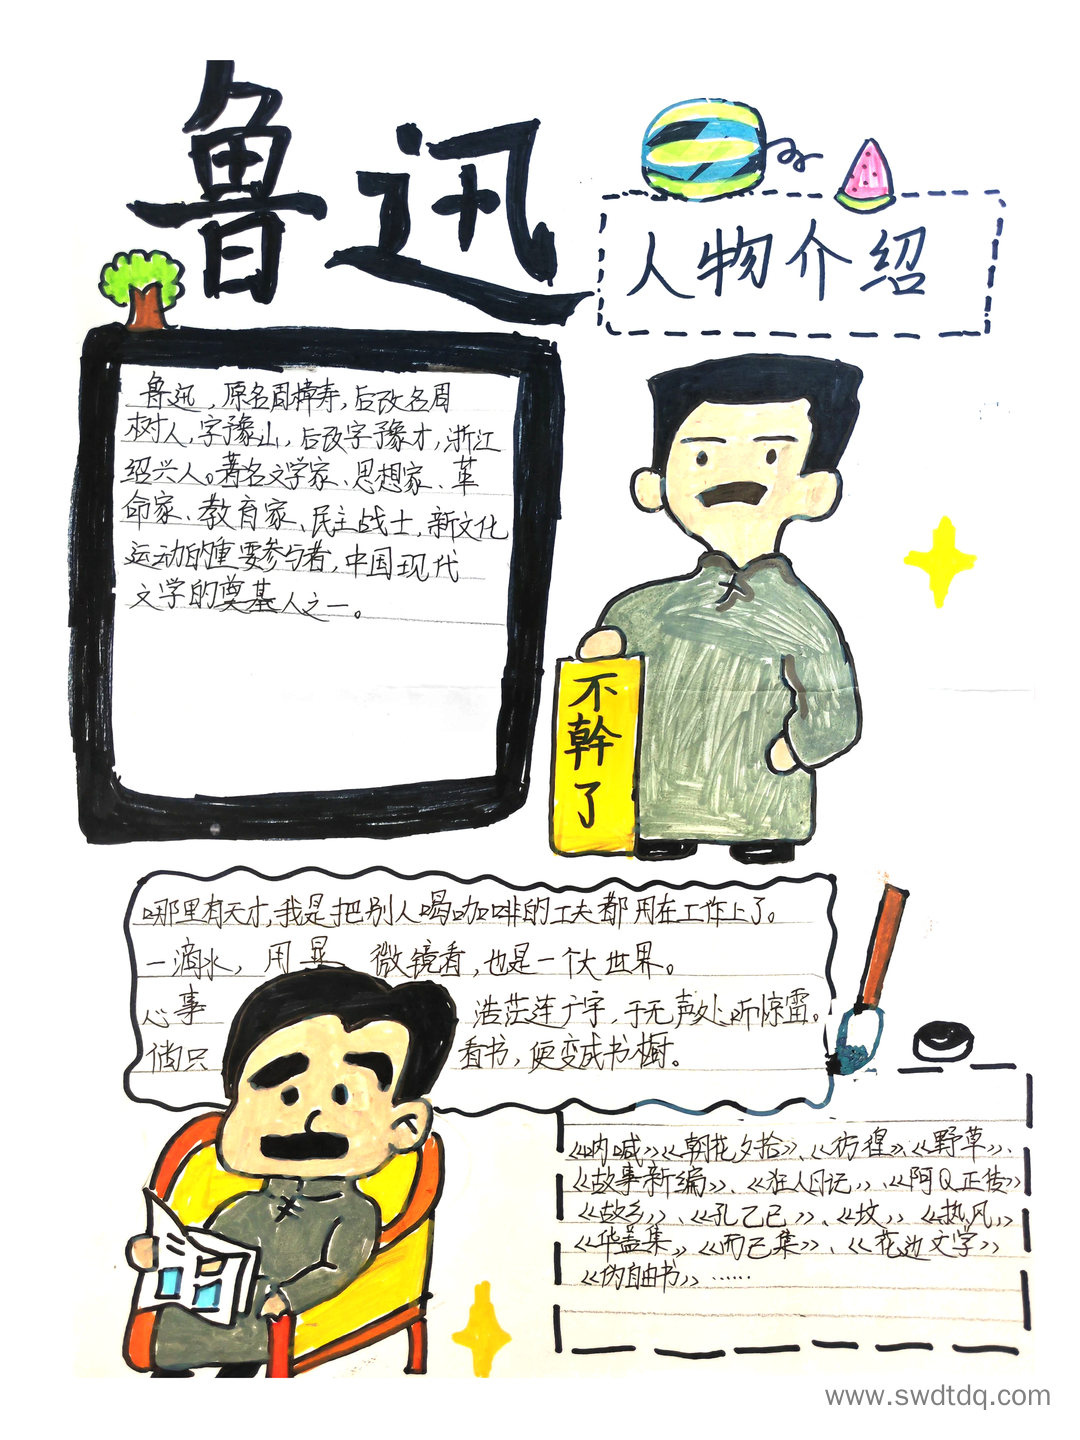 鲁迅
人物介绍
鲁迅，原名周樟寿，后改名周
树人，字豫山，后改字豫才，浙江
绍兴人。著名文学家、思想家、革
命家、教育家、民主战士，新文化
运动的重要参与者，中国现代
文学的奠基人之一。
不幹了
哪里有天才，我是把别人喝咖啡的工夫都用在工作上了。
一滴水，用显 微镜看，也是一个大世界。
心事 浩茫连广宇，于无声处听惊雷。
倘只 看书，便变成书橱。
《呐喊》《朝花夕拾》、《彷徨》、《野草》、
《故事新编》、《狂人日记》、《阿Q正传》
《故乡》、《孔乙己》、《坟》《热风》
《华盖集》《而已集》、《花边文学》
《伪自由书》……
www.swdtdq.com